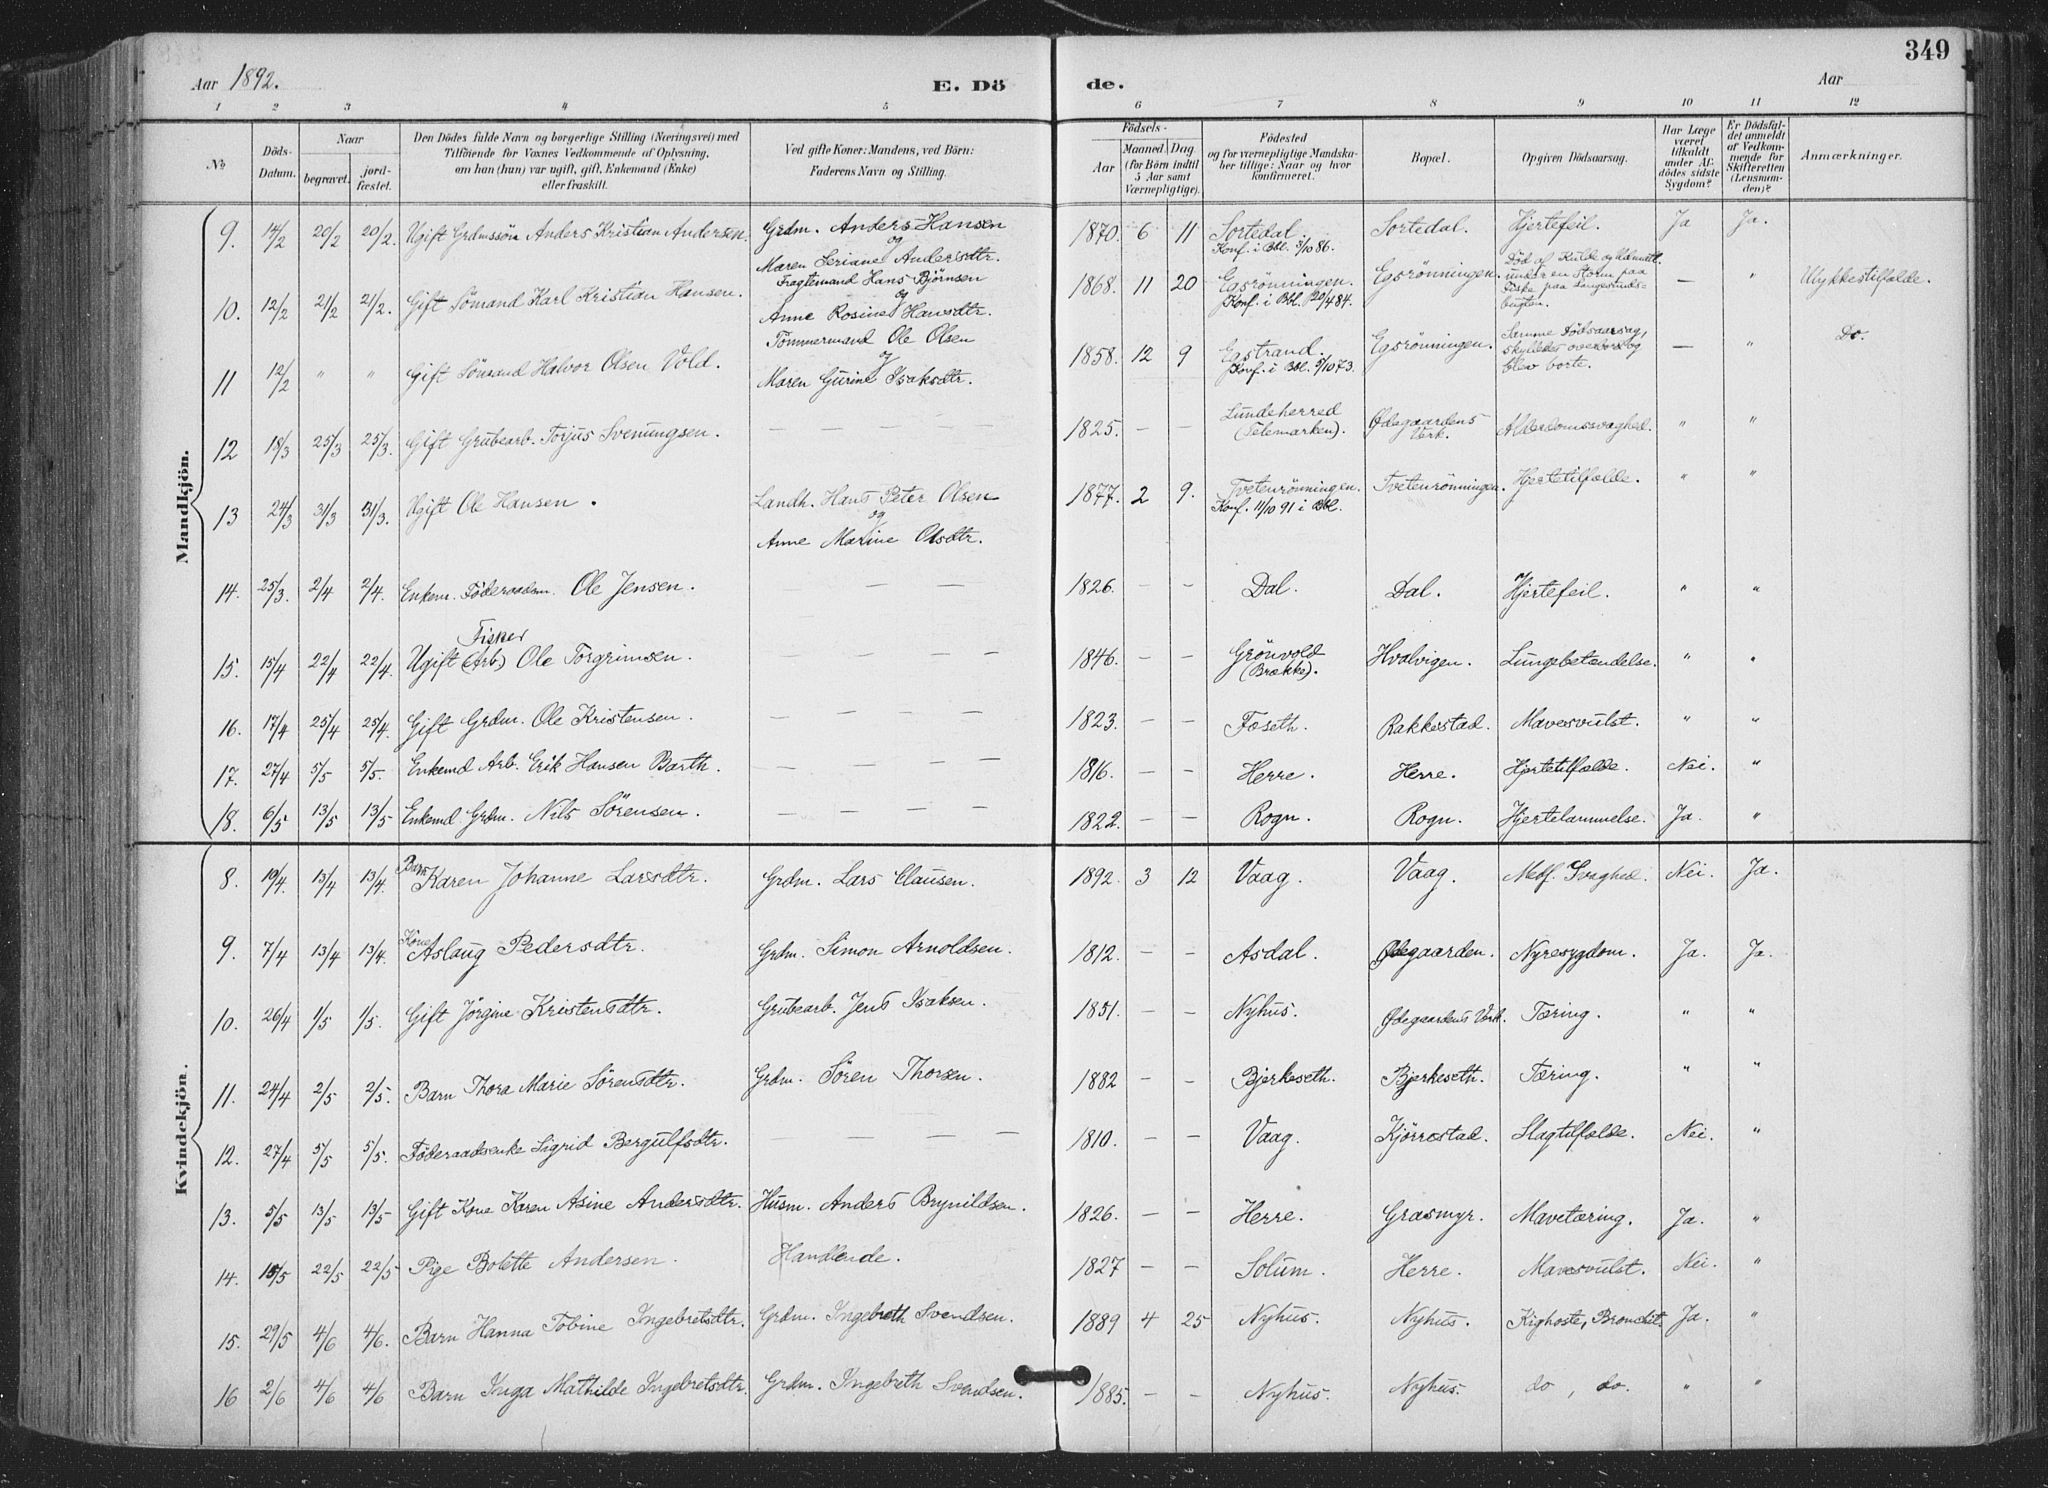 Aar 1892. E. Dö de. Aar 349
1 2 3 4 5 6 7 8 9 10 11 12
No Döds-Datum. Naar begravet. jordfæstet. Den Dödes fulde Navn og borgerlige Stilling (Næringsvei) med Tilföiende for Voxnes Vedkommende af Oplysning, om han (hun) var ugift, gift, Enkemand (Enke) eller fraskilt. Ved gifte Koner: Mandens, ved Börn: Faderens Navn og Stilling. Födsels- Aar Maaned Dag (for Börn indtil 5 Aar samt Værnepligtige). Födested og for værnepligtige Mandskaber tillige: Naar og hvor konfirmeret. Bopæl. Opgiven Dödsaarsag. Har Læge været tilkaldt under Afdödes sidste Sygdom? Er Dödsfaldet anmeldt af Vedkommende for Skifteretten (Lensmanden)? Anmærkninger.
Mandkjön.
9. 14/2 20/2 20/2. Ugift Grdmssön Anders Kristian Andersen. Grdm. Anders Hansen og Maren Seriane Andersdtr. 1870. 6 11 Sortedal. Konf. i Bbl. 3/10 86. Sortedal. Hjertefeil. Ja Ja.
10. 12/2 21/2 21/2. Gift Sömand Karl Kristian Hansen. Fragtemand Hans Björnsen og Anne Rosine Hansdtr. 1868. 11 20 Egsrönningen. Konf. i Bbl. 20/4 84. Egsrönningen. Död af Kulde og Udmatt. under en Storm paa Fiske paa Langesundsbugten. — " Ulykkestilfælde.
11 12/2 " " Gift Sömand Halvor Olsen Vold. Tömmermand Ole Olsen og Maren Gurine Isaksdtr. 1858. 12 9 Egstrand. Konf. i Bbl. 5/10 73. Egsrönningen. Samme Dödsaarsag, skylledes overbord og blev borte. — " Do.
12 18/3 25/3 25/3. Gift Grubearb. Torjus Svenungsen. — — — — 1825. — — Lundeherred (Telemarken). Ødegaardens Verk. Alderdomssvaghed. " "
13 24/3 31/3 31/3. Ugift Ole Hansen. Landh. Hans Peter Olsen og Anne Marine Olsdtr. 1877. 2 9. Tvetenrönningen. Konf. 11/10 91 i Bbl. Tvetenrönningen. Hjertetilfælde. " "
14. 25/3. 2/4 2/4. Enkem. Föderaadsm. Ole Jensen. — — — 1826. — — Dal. Dal. Hjertefeil. " "
15. 15/4 22/4 22/4. Ugift (Arb) Fisker Ole Torgrimsen. — — — — 1846. — — Grönvold (Brække). Hvalvigen. Lungebetændelse. " "
16. 17/4 25/4 25/4. Gift Grdm. Ole Kristensen. — — — — 1823. — — Foseth. Rakkestad. Mavesvulst. " "
17. 27/4 5/5 5/5. Enkemd Arb. Erik Hansen Barth. — — — — 1816. — — Herre. Herre. Hjertetilfælde. Nei. "
18. 6/5 13/5 13/5 Enkemd. Grdm. Nils Sörensen. — — — — 1822. — — Rogn. Rogn. Hjertelammelse. Ja. "
Kvindekjön.
8. 10/4. 13/4 13/4. Barn Karen Johanne Larsdtr. Grdm. Lars Clausen. 1892. 3 12 Vaag. Vaag. Medf. Svaghed. Nei. Ja.
9. 7/4 13/4 13/4. Kone Aslaug Pedersdtr. Grdm. Simon Arnoldsen. 1812. — — Asdal. Ødegaarden. Nyresygdom. Ja. Ja.
10. 26/4 1/5 1/5. Gift Jörgine Kristensdtr. Grubearb. Jens Isaksen. 1851. — — Nyhus. Ødegaardens Verk. Tæring. " "
11. 24/4 2/5 2/5. Barn Thora Marie Sörensdtr. Grdm. Sören Thorsen. 1882 — — Bjerkeseth. Bjerkeseth. Tæring. " "
12. 27/4 5/5 5/5. Föderaadsenke Sigrid Bergulfsdtr. — — — — 1810. — — Vaag. Kjörrestad. Slagtilfælde. Nei. "
13. 5/5 13/5 13/5 Gift Kone Karen Asine Andersdtr. Husm. Anders Brynildsen. 1826. — — Herre. Grasmyr. Mavetæring. Ja. "
14. 15/5 22/5 22/5 Pige Bolette Andersen. Handlende. 1827 — — Solum. Herre. Mavesvulst. Nei. "
15. 29/5 4/6 4/6. Barn Hanna Tobine Ingebretsdtr. Grdm. Ingebreth Svendsen. 1889 4 25 Nyhus. Nyhus. Kighoste, Bronchit. Ja. "
16 2/6 4/6 4/6 Barn Inga Mathilde Ingebretsdtr. Grdm. Ingebreth Svendsen. 1885. — — Nyhus. Nyhus. do, do. " "